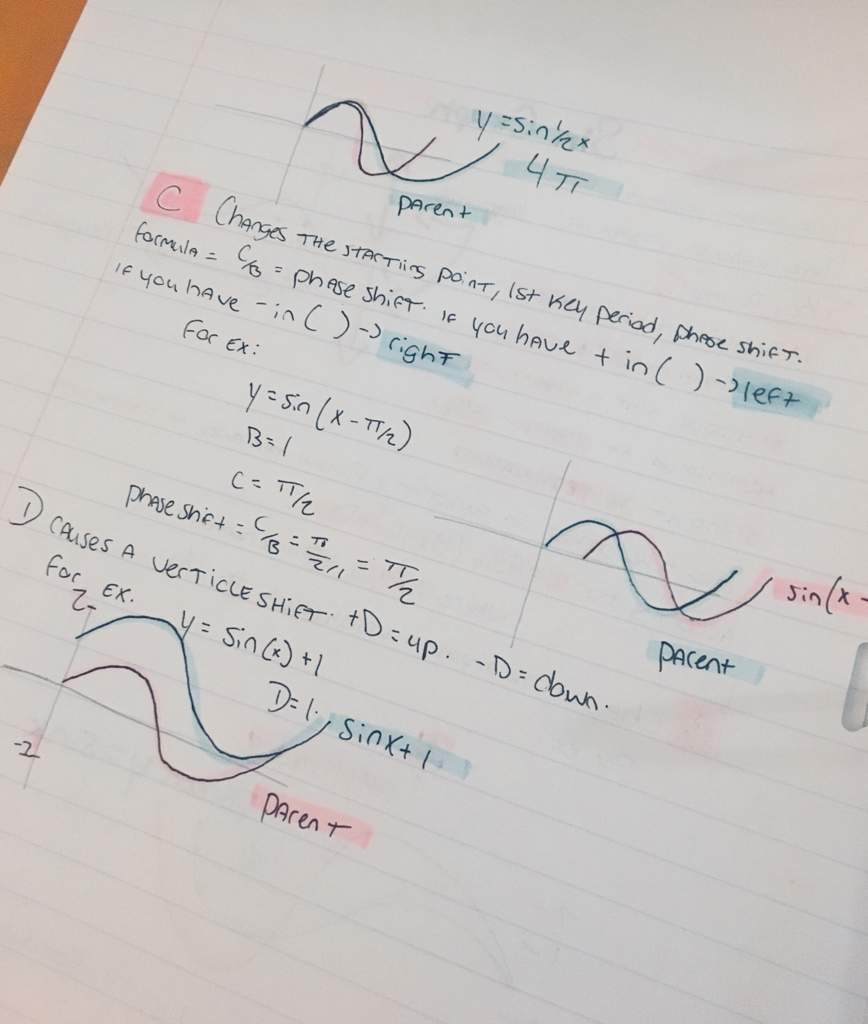 y = sin 1/2 x
4π
parent
C Changes THE STARTiing point, 1st Key period, phase shift.
Formula = C/B = phase shift. if you have + in ( ) -> left
if you have - in ( ) -> right
For Ex:
y = sin (x - π/2)
B = 1
C = π/2
phase shift = C/B = π/2/1 = π/2
sin(x -
parent
D causes a verticle shift. +D = up. -D = down.
For Ex.
2
y = sin(x) + 1
D = 1.
sinx + 1
-2
parent